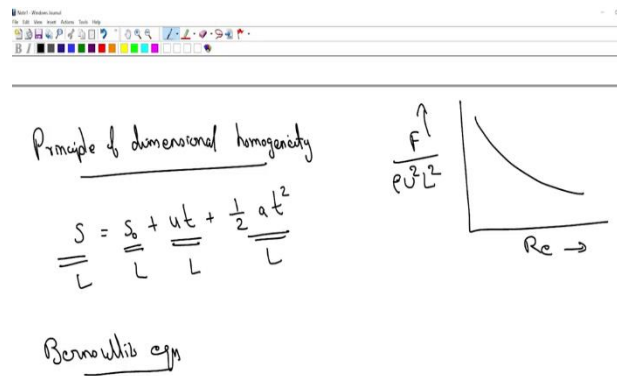 Note1 - Windows Journal
File Edit View Insert Actions Tools Help
B I
Principle of dimensional homogeneity
S = S₀ + ut + 1/2 at²
L L L L
F/ρU²L²
Re →
Bernoullis eqn